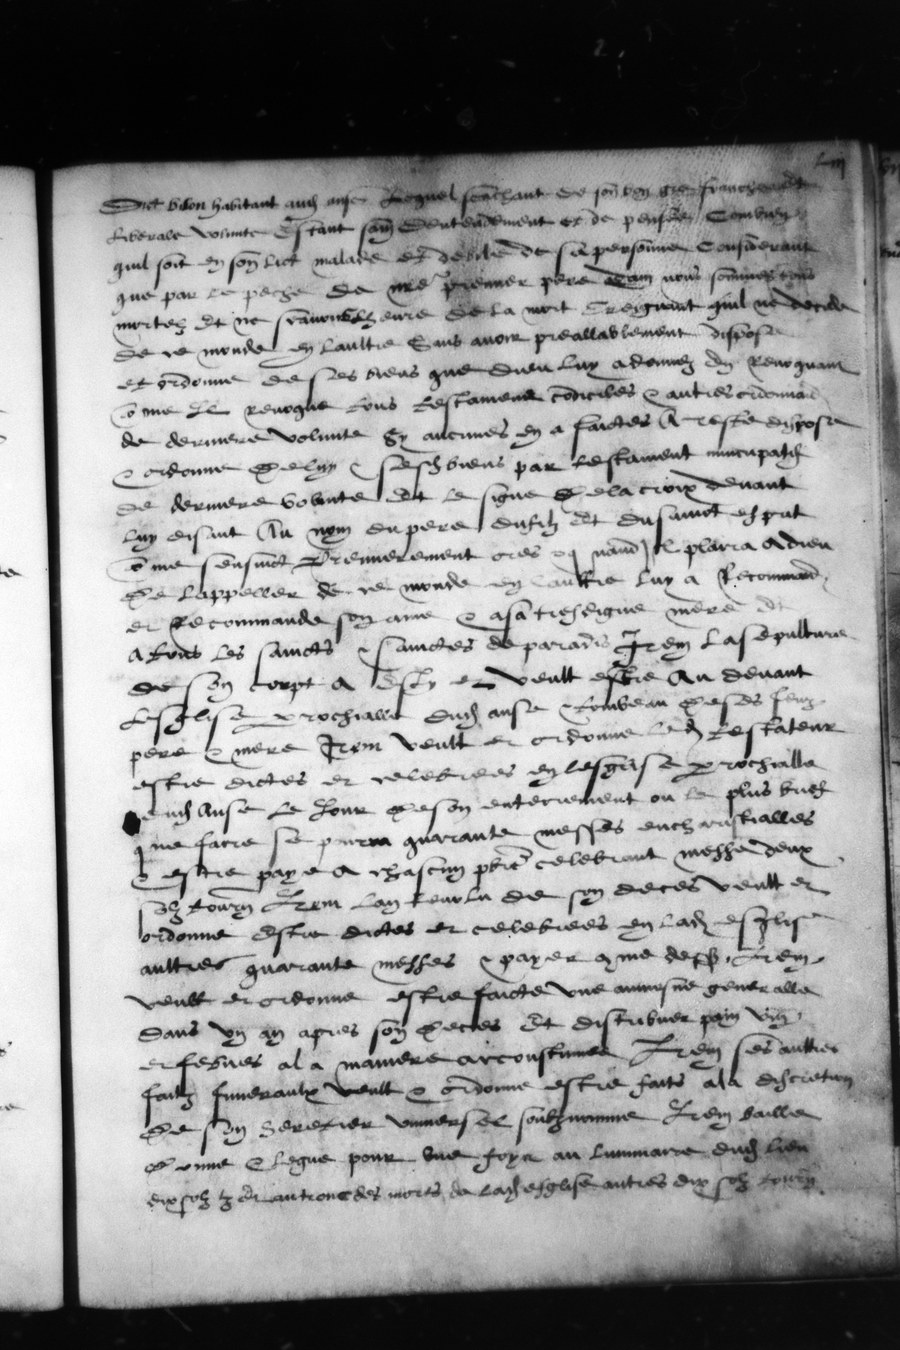 habitant aud anse lequel saichant de son bon gre franche et
liberale volunte Estant sain dentendement et de pensee Combien
quil soit en son lict malade et debile de sa personne Considerant
que par le peche de nre premier pere adam nous sommes tous
mortelz Et ne scavons lheure de la mort Creignant quil ne decede
de ce monde en laultre Sans avoir preallablement dispose
et ordonne de ses biens que dieu luy a donnez En Revoquant
come Il revoque tous testamens codiciles & autres ordonnan
de derniere volunte sy aucunes en a faictes A reste dispose
& ordonne de luy & sesd biens par testament nuncupatif
de derniere volunte Et le signe de la croix devant
luy disant Au nom du pere du filz Et du sainct esprit
come sensuict Premierement ores & quand Il plaira a dieu
de lappeller de ce monde en laultre luy a Recommand
et Recommande son ame & a sa mere Et
a tous les saincts & sainctes de paradis Item la sepulture
de son corps a esly et veult estre Au devant
lesglise parrochialle dud anse & tombeau de ses feuz
pere & mere Item veult et ordonne led testateur
estre dictes et celebrees en lesglise parrochialle
dud Anse le Jour de son enterrement ou le plus brief
que faire se pourra quarante messes
& estre paye a chascun pbre celebrant messe deux
solz tourn Item lan revolu de son deces veult et
ordonne Estre dictes et celebrees en lad esglise
aultres quarante messes & payer come dess Item
veult et ordonne estre faicte une aumosne generalle
dans un an apres son deces Et distribuer pain vin
et febves a la maniere accoustumee Item ses aultres
faitz funeraulx veult & ordonne estre faits a la discretion
de son heretier universel soubznomme Item baille
donne & legue pour une foys au luminaire dud lieu
dix solz tz Et au tronc des morts de lad esglise autres dix solz tourn